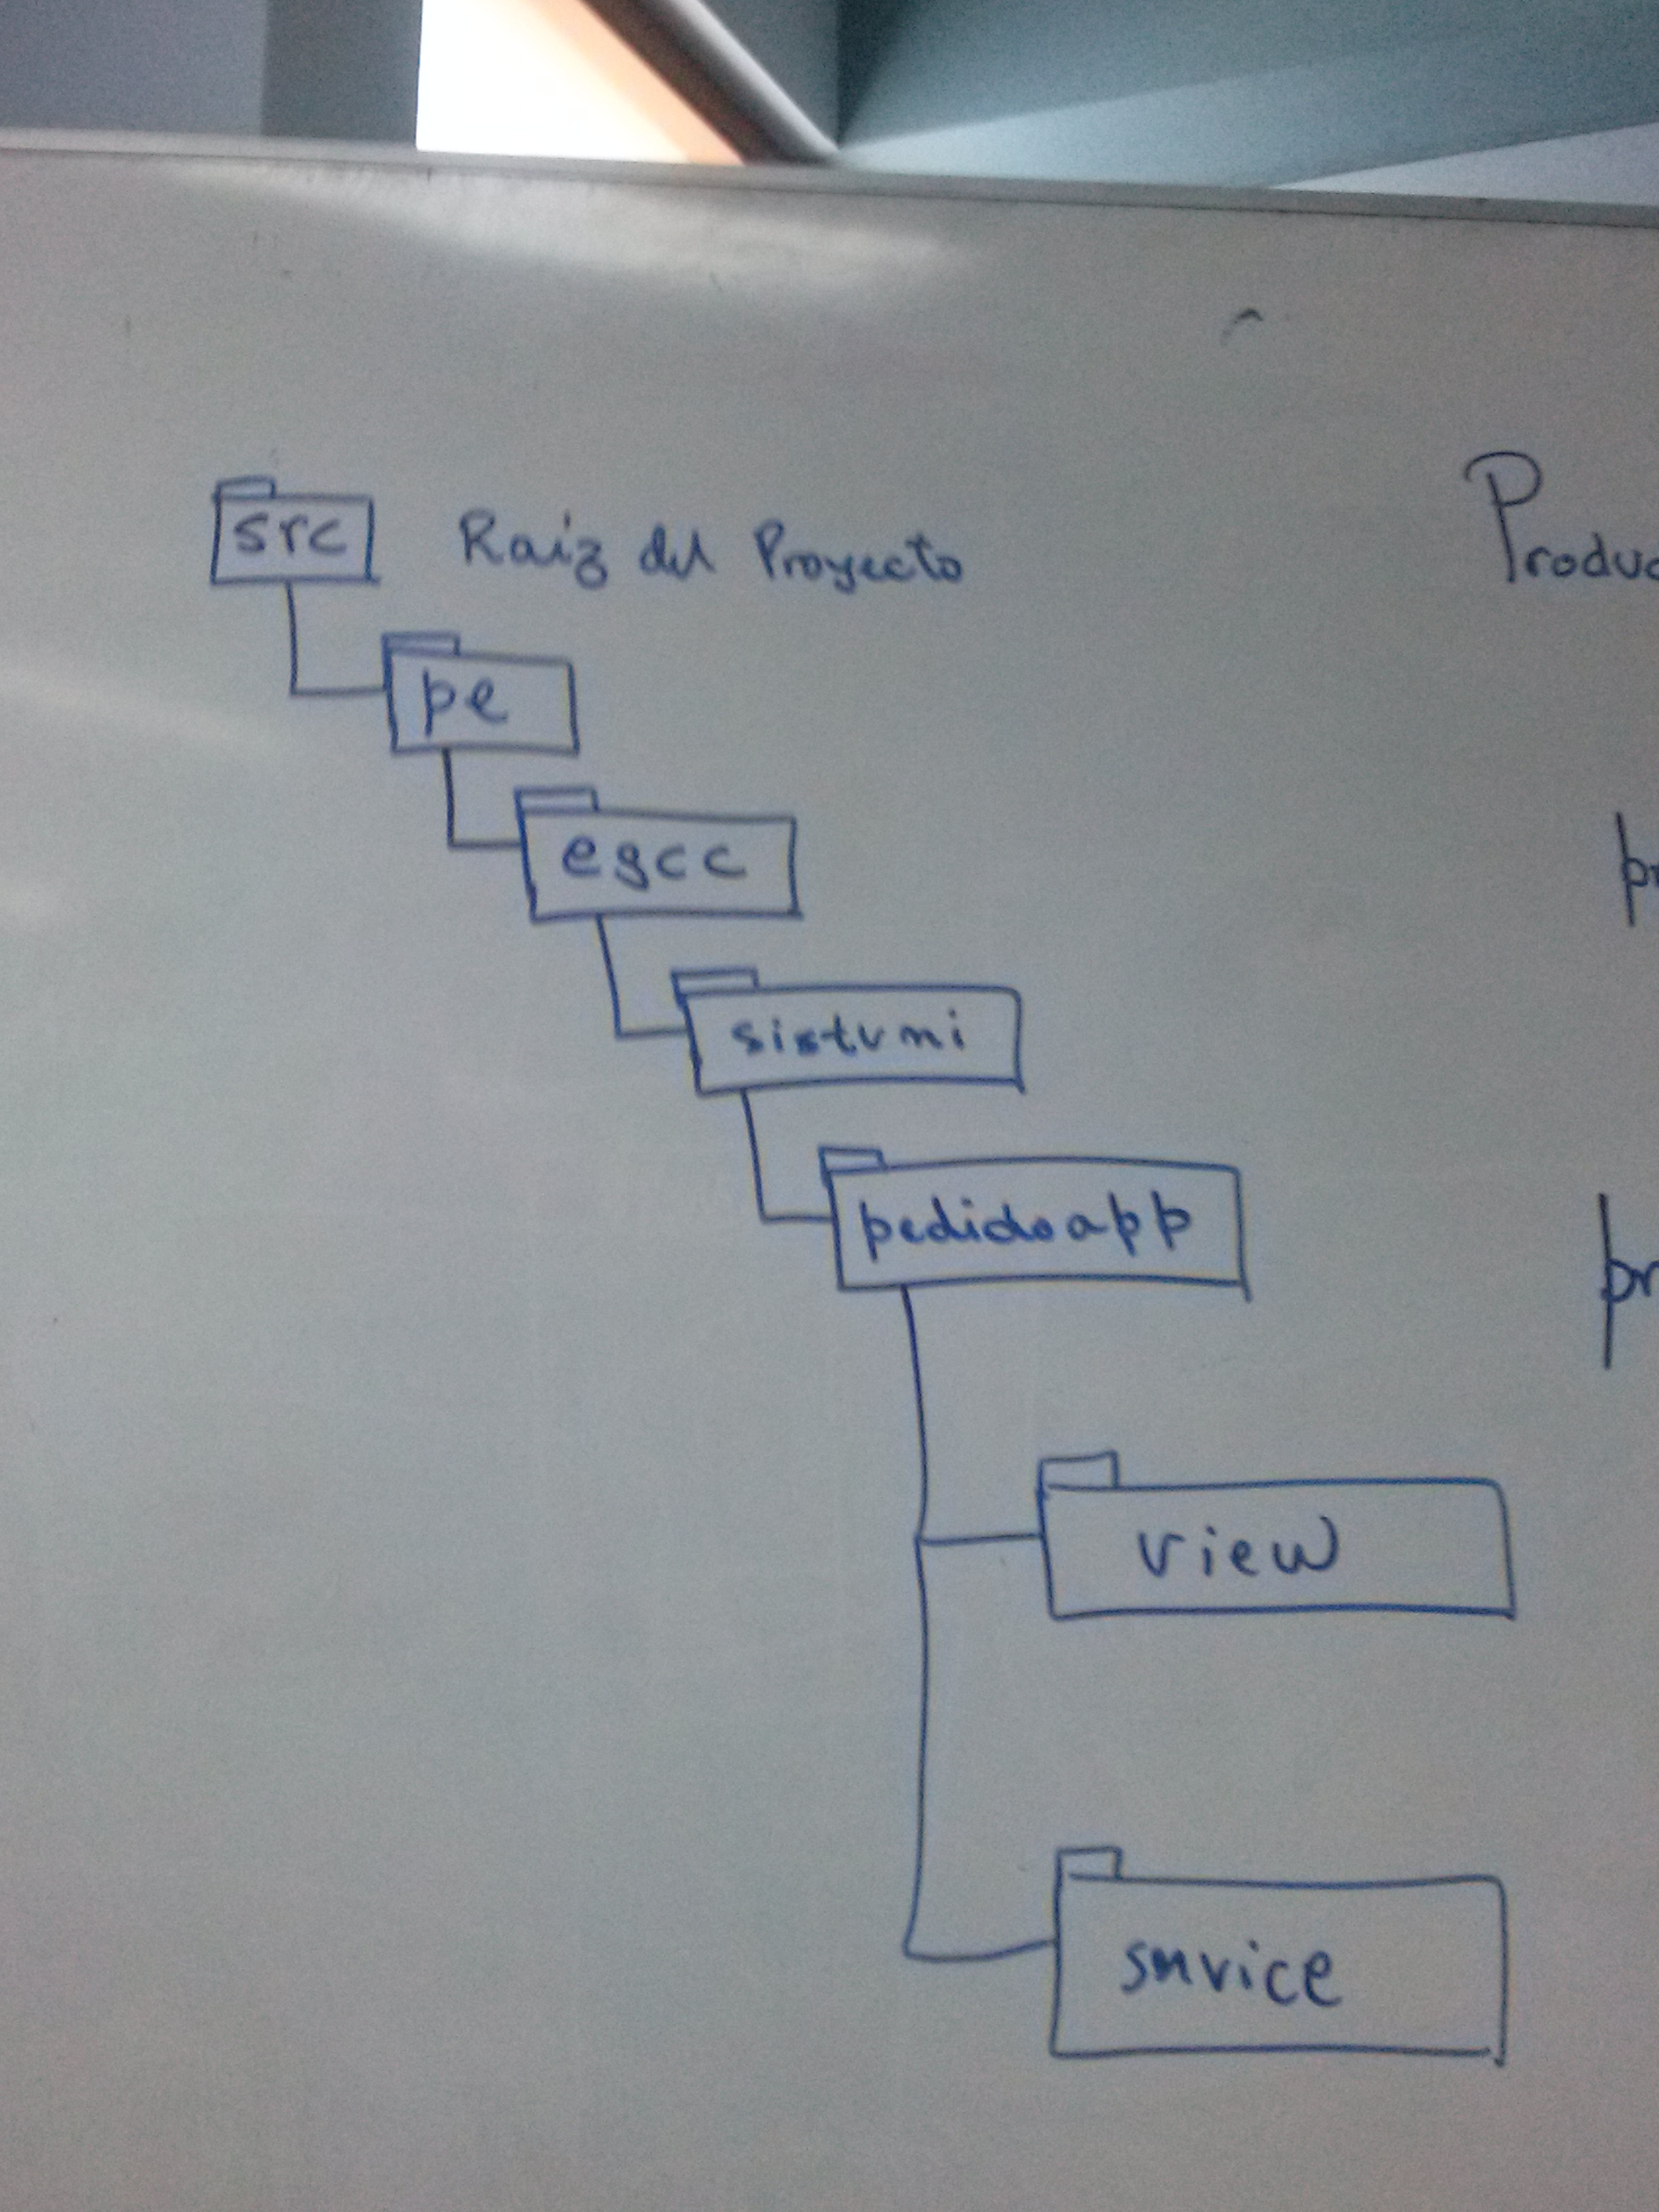 src Raiz del Proyecto
pe
egcc
sistuni
pedidoapp
view
service
Produc
pr
pr